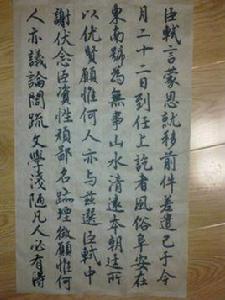 臣軾言蒙恩就移前件差遣已于今
月二十二日到任上訖者風俗阜安在
東南號為無事山水清遠本朝廷所
以优賢顧惟何人亦与茲選臣軾中
謝伏念臣資性頑鄙名跡堙微顧惟何
人亦議論闊疏文學淺陋凡人必有